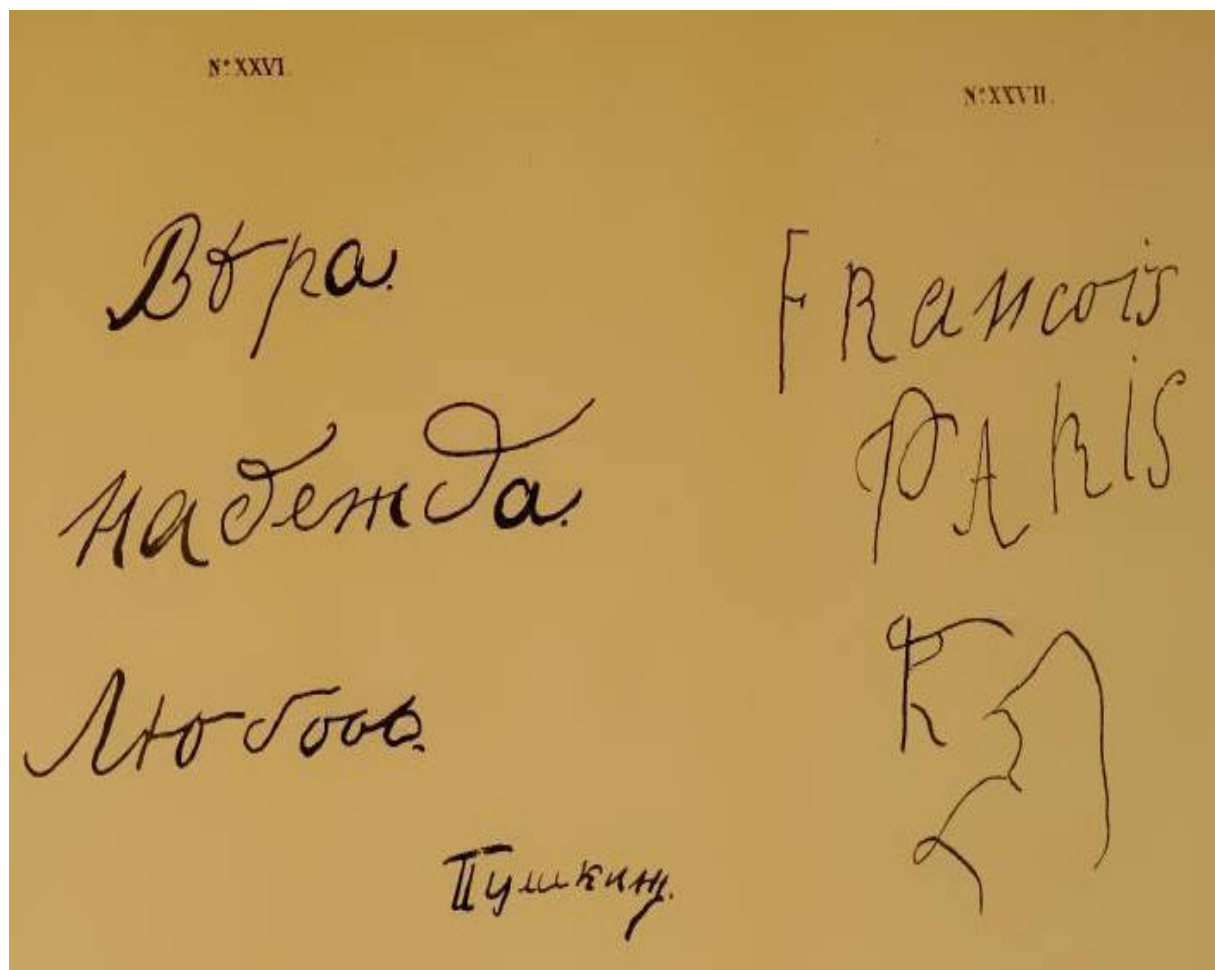 Nº XXVI.
Вѣра.
надежда.
Любовь.
Пушкинъ.
Nº XXVII.
FRancois
PARIS
R